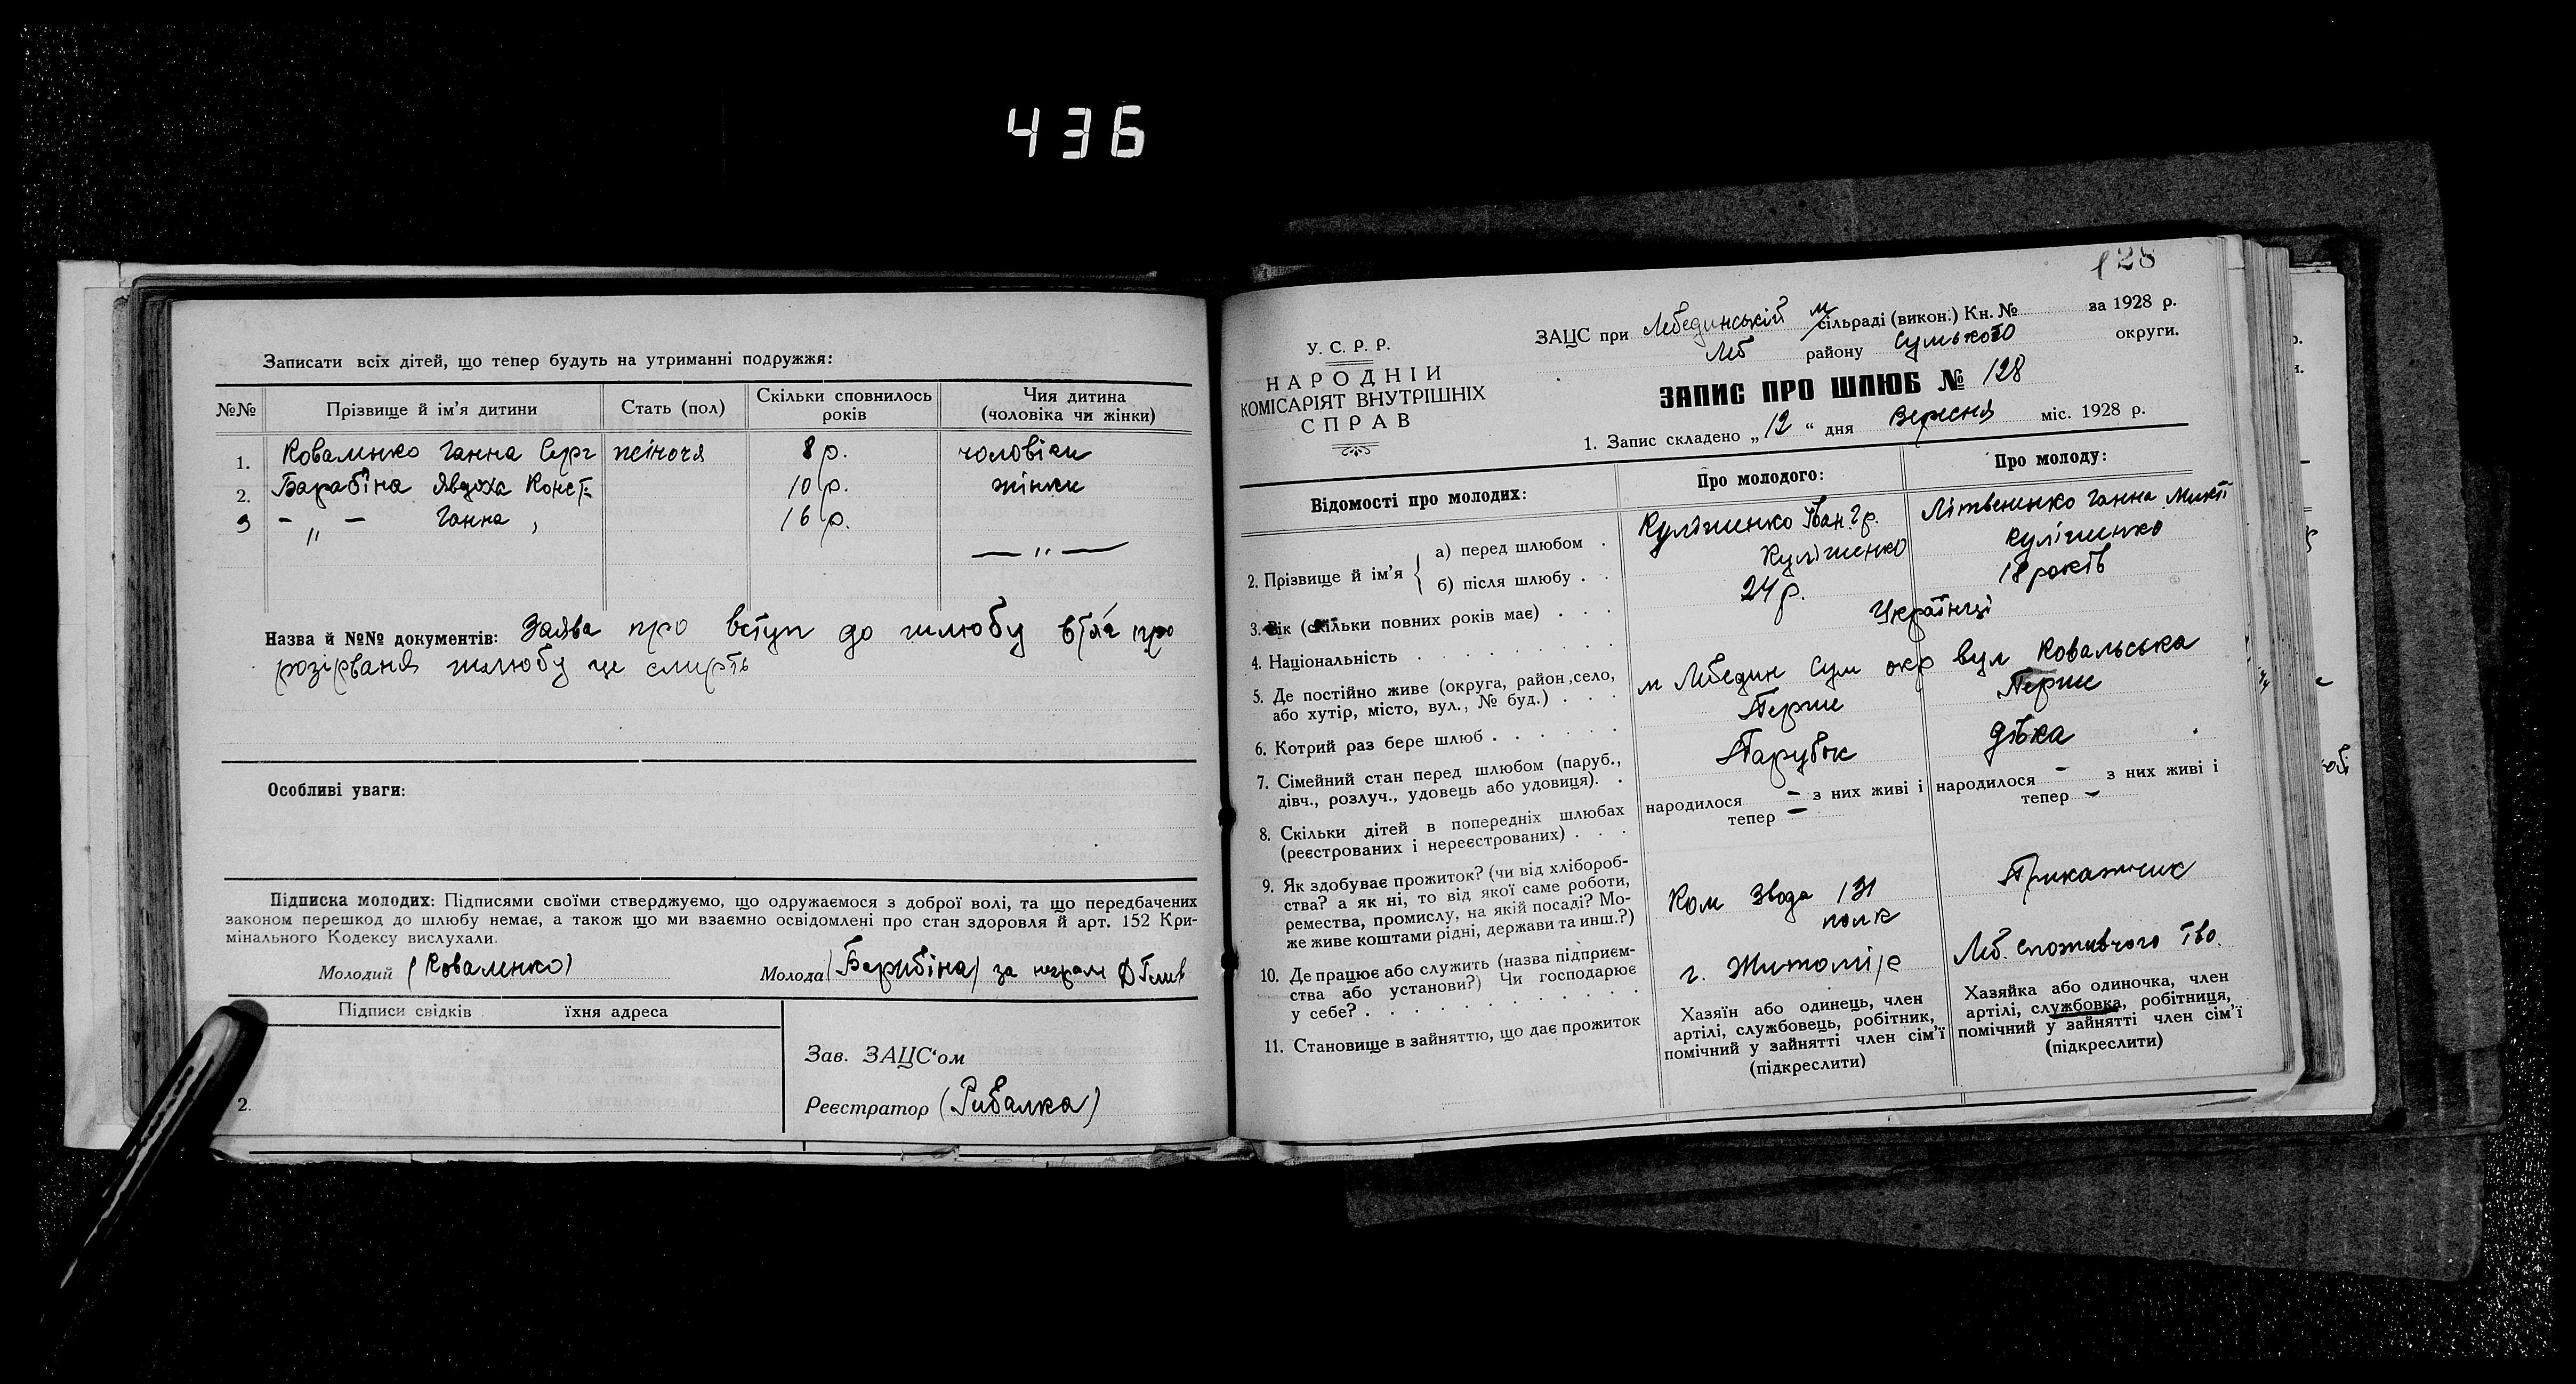 436
Записати всіх дітей, що тепер будуть на утриманні подружжя:
№№ Прізвище й ім'я дитини Стать (пол) Скільки сповнилось років Чия дитина (чоловіка чи жінки)
1. Коваленко Ганна Серг жіночя 8 р. чоловіки
2. Барабіна Явдоха Конст 10 р. жінки
3 — „ — Ганна „ 16 р.
— „ —
Назва й №№ документів: Заява про вступ до шлюбу втяг про
розірваня шлюбу це смерть
Особливі уваги:
Підписка молодих: Підписями своїми стверджуємо, що одружаємося з доброї волі, та що передбачених
законом перешкод до шлюбу немає, а також що ми взаємно освідомлені про стан здоровля й арт. 152 Кри-
мінального Кодексу вислухали.
Молодий (Коваленко) Молода (Барибіна) за неграм
Підписи свідків їхня адреса
Зав. ЗАЦС'ом
2. Реєстратор (Рибалка)
128
У. С. Р. Р.
НАРОДНІЙ
КОМІСАРІЯТ ВНУТРІШНІХ
СПРАВ
ЗАЦС при Лебединській м сільраді (викон.) Кн. № за 1928 р.
Леб району Сумького округи.
ЗАПИС ПРО ШЛЮБ № 128
1. Запис складено „12“ дня Вересня міс. 1928 р.
Відомості про молодих: Про молодого: Про молоду:
2. Прізвище й ім'я
а) перед шлюбом . Кулішенко Іван Гр. Літвененко Ганна Микт
б) після шлюбу . . Кулішенко Кулішенко
3. Вік (скільки повних років має) . . . 24 р. 18 років
4. Національність . . . Українці
5. Де постійно живе (округа, район, село,
або хутір, місто, вул., № буд.) . . . м Лебедин Сум окр вул Ковальська
6. Котрий раз бере шлюб . . . Перше Перше
7. Сімейний стан перед шлюбом (паруб.,
дівч., розлуч., удовець або удовиця). . Парубок дівка
8. Скільки дітей в попередніх шлюбах
(реєстрованих і нереєстрованих) . . .
народилося — з них живі і
тепер —
народилося — з них живі і
тепер —
9. Як здобуває прожиток? (чи від хлібороб-
ства? а як ні, то від якої саме роботи,
ремества, промислу, на якій посаді? Мо-
же живе коштами рідні, держави та инш.?)
Ком Звода 131
полк
Приказчик
10. Де працює або служить (назва підприєм-
ства або установи?) Чи господарює
у себе? . . .
г. Житомір
Леб. Споживчого Тво.
11. Становище в зайняттю, що дає прожиток
Хазяїн або одинець, член
артілі, службовець, робітник,
помічний у зайнятті член сім'ї
(підкреслити)
Хазяйка або одиночка, член
артілі, службовка, робітниця,
помічний у зайнятті член сім'ї
(підкреслити)